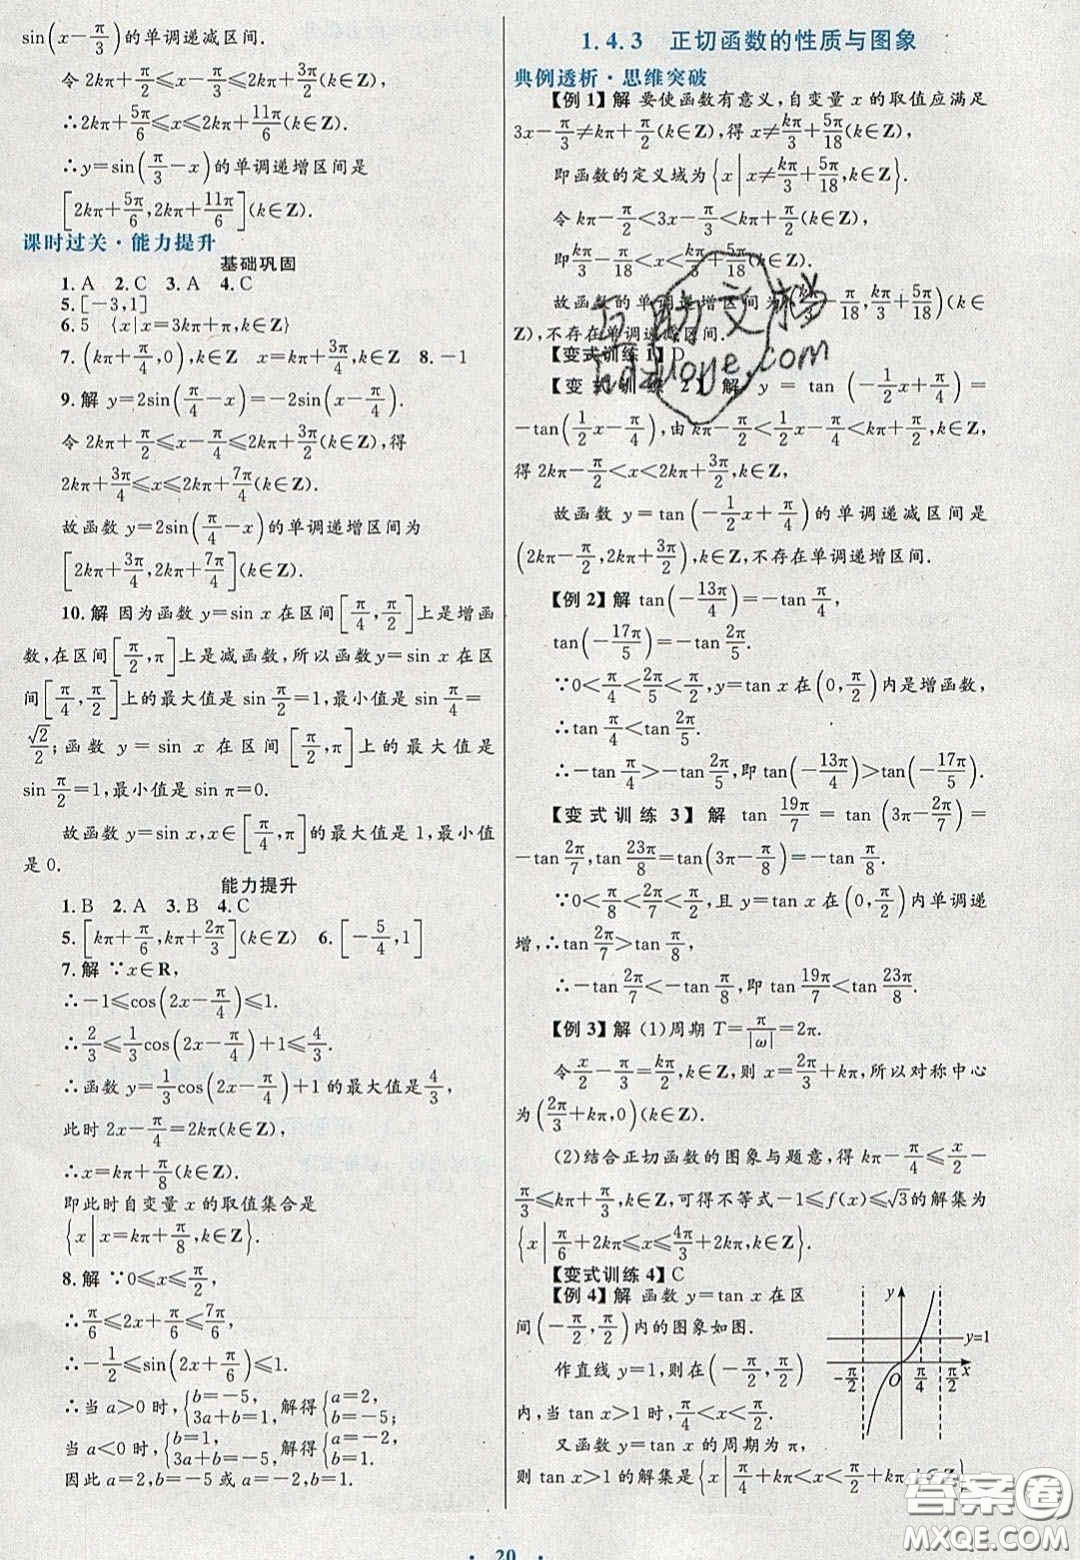 sin(x−π/3)的单调递减区间.
令 2kπ+π/2≤x−π/3≤2kπ+3π/2(k∈Z).
∴2kπ+5π/6≤x≤2kπ+11π/6(k∈Z).
∴y=sin(π/3−x)的单调递增区间是
[2kπ+5π/6,2kπ+11π/6](k∈Z).
课时过关·能力提升
基础巩固
1. A 2. C 3. A 4. C
5. [−3,1]
6. 5 {x|x=3kπ+π,k∈Z}
7. (kπ+π/4,0),k∈Z x=kπ+3π/4,k∈Z 8. −1
9. 解 y=2sin(π/4−x)=−2sin(x−π/4).
令 2kπ+π/2≤x−π/4≤2kπ+3π/2(k∈Z),得
2kπ+3π/4≤x≤2kπ+7π/4(k∈Z).
故函数 y=2sin(π/4−x)的单调递增区间为
[2kπ+3π/4,2kπ+7π/4](k∈Z).
10. 解 因为函数 y=sin x 在区间[π/4,π/2]上是增函
数,在区间[π/2,π]上是减函数,所以函数y=sin x 在区
间[π/4,π/2]上的最大值是 sin π/2=1,最小值是 sin π/4=
√2/2;函数 y=sin x 在区间[π/2,π]上的最大值是
sin π/2=1,最小值是 sin π=0.
故函数 y=sin x,x∈[π/4,π]的最大值是 1,最小值
是 0.
能力提升
1. B 2. A 3. B 4. C
5. [kπ+π/6,kπ+2π/3](k∈Z) 6. [−5/4,1]
7. 解 ∵x∈R,
∴−1≤cos(2x−π/4)≤1.
∴2/3≤1/3cos(2x−π/4)+1≤4/3.
∴函数 y=1/3cos(2x−π/4)+1 的最大值是4/3,
此时 2x−π/4=2kπ(k∈Z),
∴x=kπ+π/8(k∈Z).
即此时自变量 x 的取值集合是
{x|x=kπ+π/8,k∈Z}.
8. 解 ∵0≤x≤π/2,
∴π/6≤2x+π/6≤7π/6,
∴−1/2≤sin(2x+π/6)≤1.
∴当 a>0 时,{b=−5, 3a+b=1,解得{a=2, b=−5;
当 a<0 时,{b=1, 3a+b=−5,解得{a=−2, b=1.
因此 a=2,b=−5 或 a=−2,b=1.
1.4.3 正切函数的性质与图象
典例透析·思维突破
【例 1】解 要使函数有意义,自变量 x 的取值应满足
3x−π/3≠kπ+π/2(k∈Z),得 x≠kπ/3+5π/18(k∈Z),
即函数的定义域为{x|x≠kπ/3+5π/18,k∈Z}.
令 kπ−π/2<3x−π/3<kπ+π/2(k∈Z),
即kπ/3−π/18<x<kπ/3+5π/18(k∈Z).
故函数的单调递增区间为(kπ/3−π/18,kπ/3+5π/18)(k∈
Z),不存在单调递减区间.
【变式训练 1】D
【变式训练 2】解 y=tan(−1/2x+π/4)=
−tan(1/2x−π/4),由 kπ−π/2<1/2x−π/4<kπ+π/2,k∈Z,
得 2kπ−π/2<x<2kπ+3π/2,k∈Z,
故函数 y=tan(−1/2x+π/4)的单调递减区间是
(2kπ−π/2,2kπ+3π/2),k∈Z,不存在单调递增区间.
【例 2】解 tan(−13π/4)=−tan π/4,
tan(−17π/5)=−tan 2π/5.
∵0<π/4<2π/5<π/2,y=tan x 在(0,π/2)内是增函数,
∴tan π/4<tan 2π/5.
∴−tan π/4>−tan 2π/5,即 tan(−13π/4)>tan(−17π/5).
【变式训练 3】解 tan 19π/7=tan(3π−2π/7)=
−tan 2π/7,tan 23π/8=tan(3π−π/8)=−tan π/8.
∵0<π/8<2π/7<π/2,且 y=tan x 在(0,π/2)内单调递
增,∴tan 2π/7>tan π/8.
∴−tan 2π/7<−tan π/8,即 tan 19π/7<tan 23π/8.
【例 3】解 (1)周期 T=π/|ω|=2π.
令x/2−π/3=kπ/2,k∈Z,则 x=2π/3+kπ,所以对称中心
为(2π/3+kπ,0)(k∈Z).
(2)结合正切函数的图象与题意,得 kπ−π/4≤x/2−
π/3≤kπ+π/3,k∈Z,可得不等式−1≤f(x)≤√3的解集为
{x|π/6+2kπ≤x≤4π/3+2kπ,k∈Z}.
【变式训练 4】C
【例 4】解 函数 y=tan x 在区
间(−π/2,π/2)内的图象如图.
作直线 y=1,则在(−π/2,π/2)
内,当 tan x>1 时,π/4<x<π/2.
又函数 y=tan x 的周期为 π,
则 tan x>1 的解集是{x|π/4+kπ<x<π/2+kπ,k∈Z}.
y
y=1
−π/2 O π/4 π/2 x
互助文档
答案圈
MXQE.COM
· 20 ·